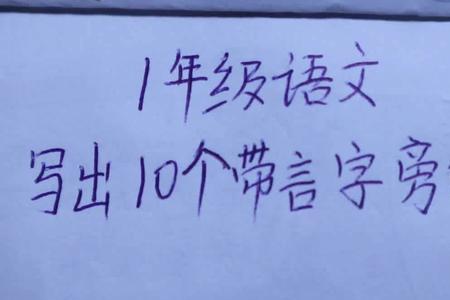 1年级语文
写出10个带言字旁